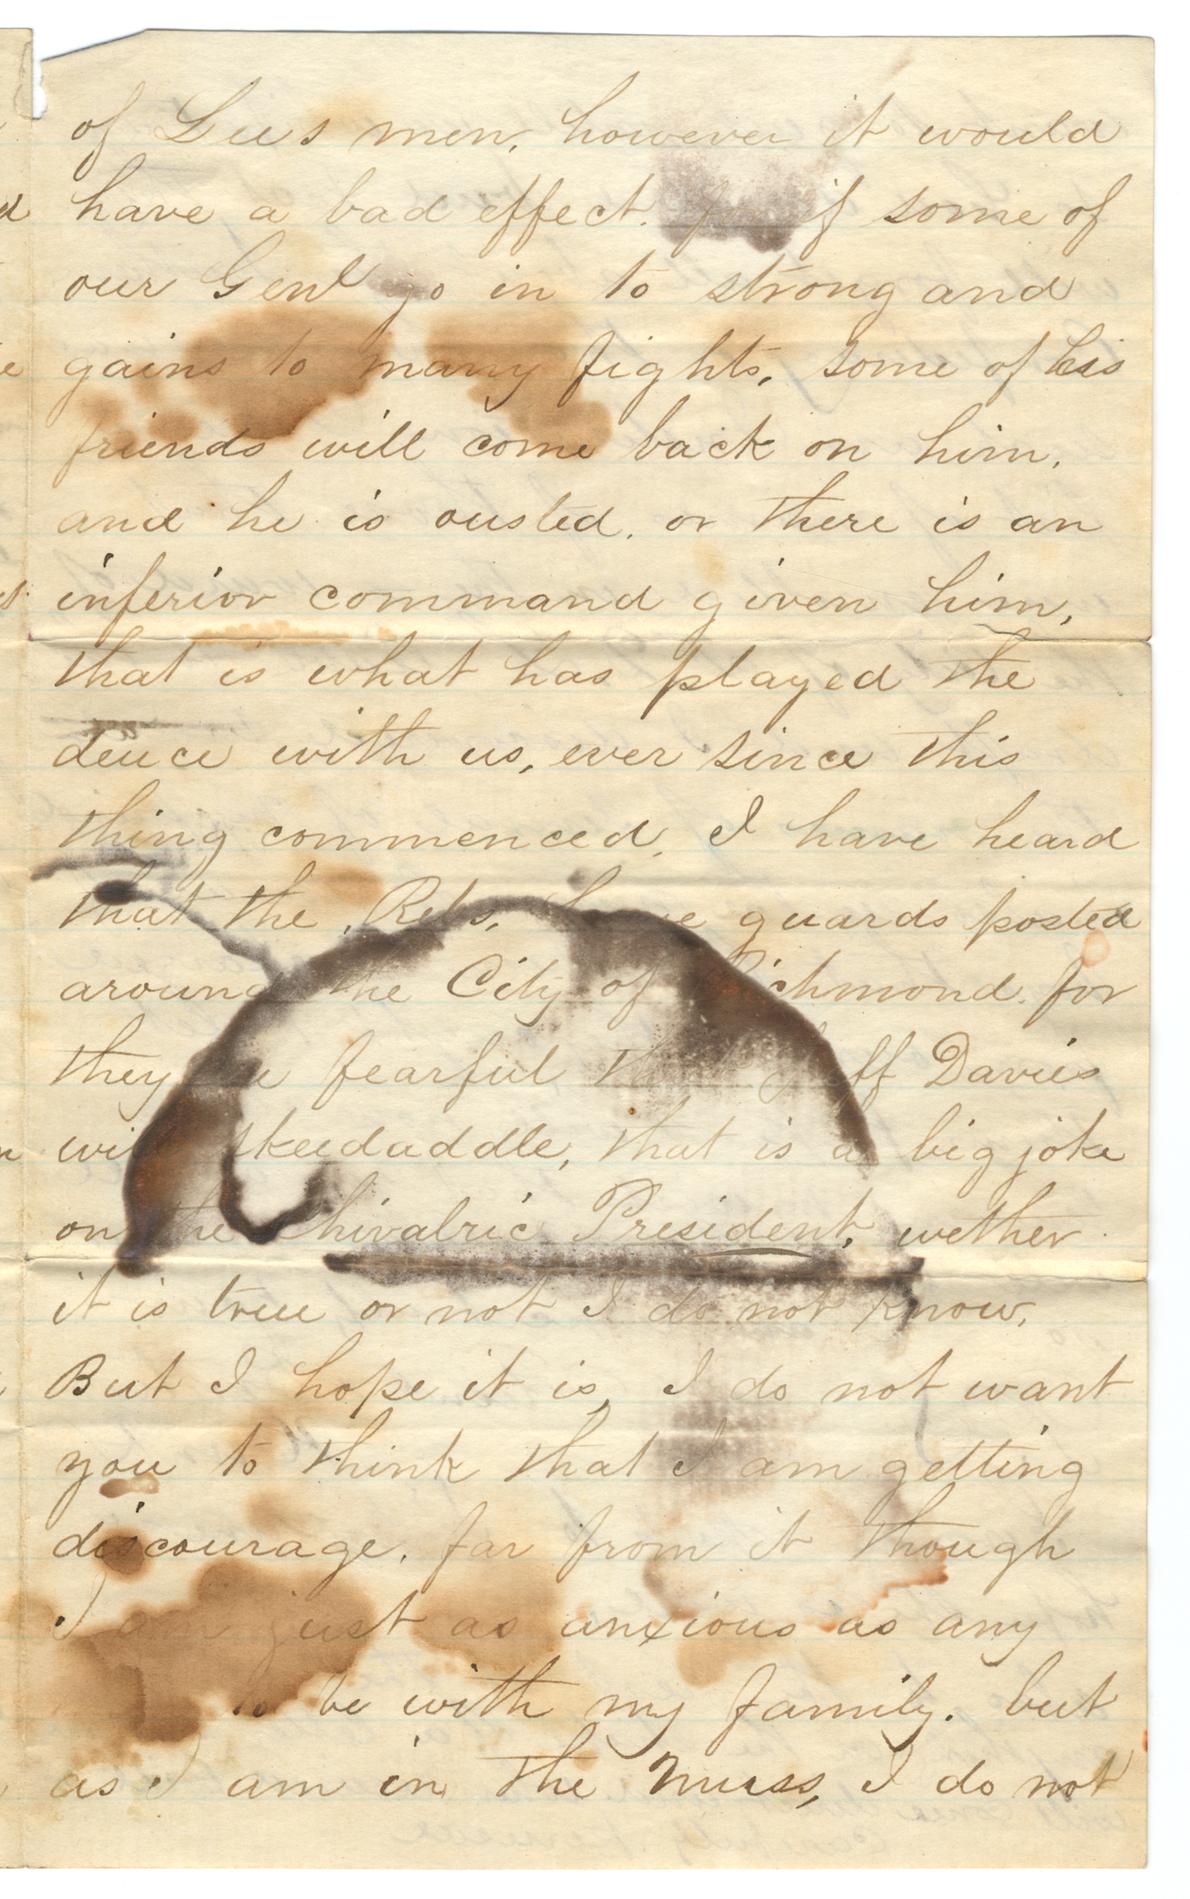 of Lee's men, however it would
have a bad effect. for if some of
our Genl go in to strong and
gains to many fights, some of his
friends will come back on him,
and he is ousted. or there is an
inferior command given him,
that is what has played the
deuce with us, ever since this
thing commenced, I have heard
that the Rebs, have guards posted
around the City of Richmond. for
they are fearful that Jeff Davies
will skeedaddle, that is a big joke
on the Chivalric President, wether
it is true or not I do not know,
But I hope it is, I do not want
you to think that I am getting
discourage, far from it though
I am just as anxious as any
to be with my family. but
as I am in the muss, I do not